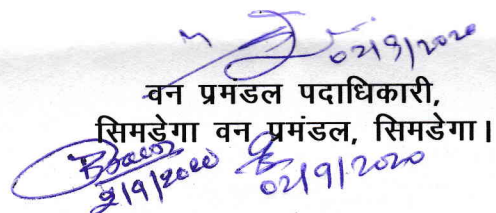 02/9/2020
वन प्रमंडल पदाधिकारी,
सिमडेगा वन प्रमंडल, सिमडेगा।
2/9/2020 02/9/2020